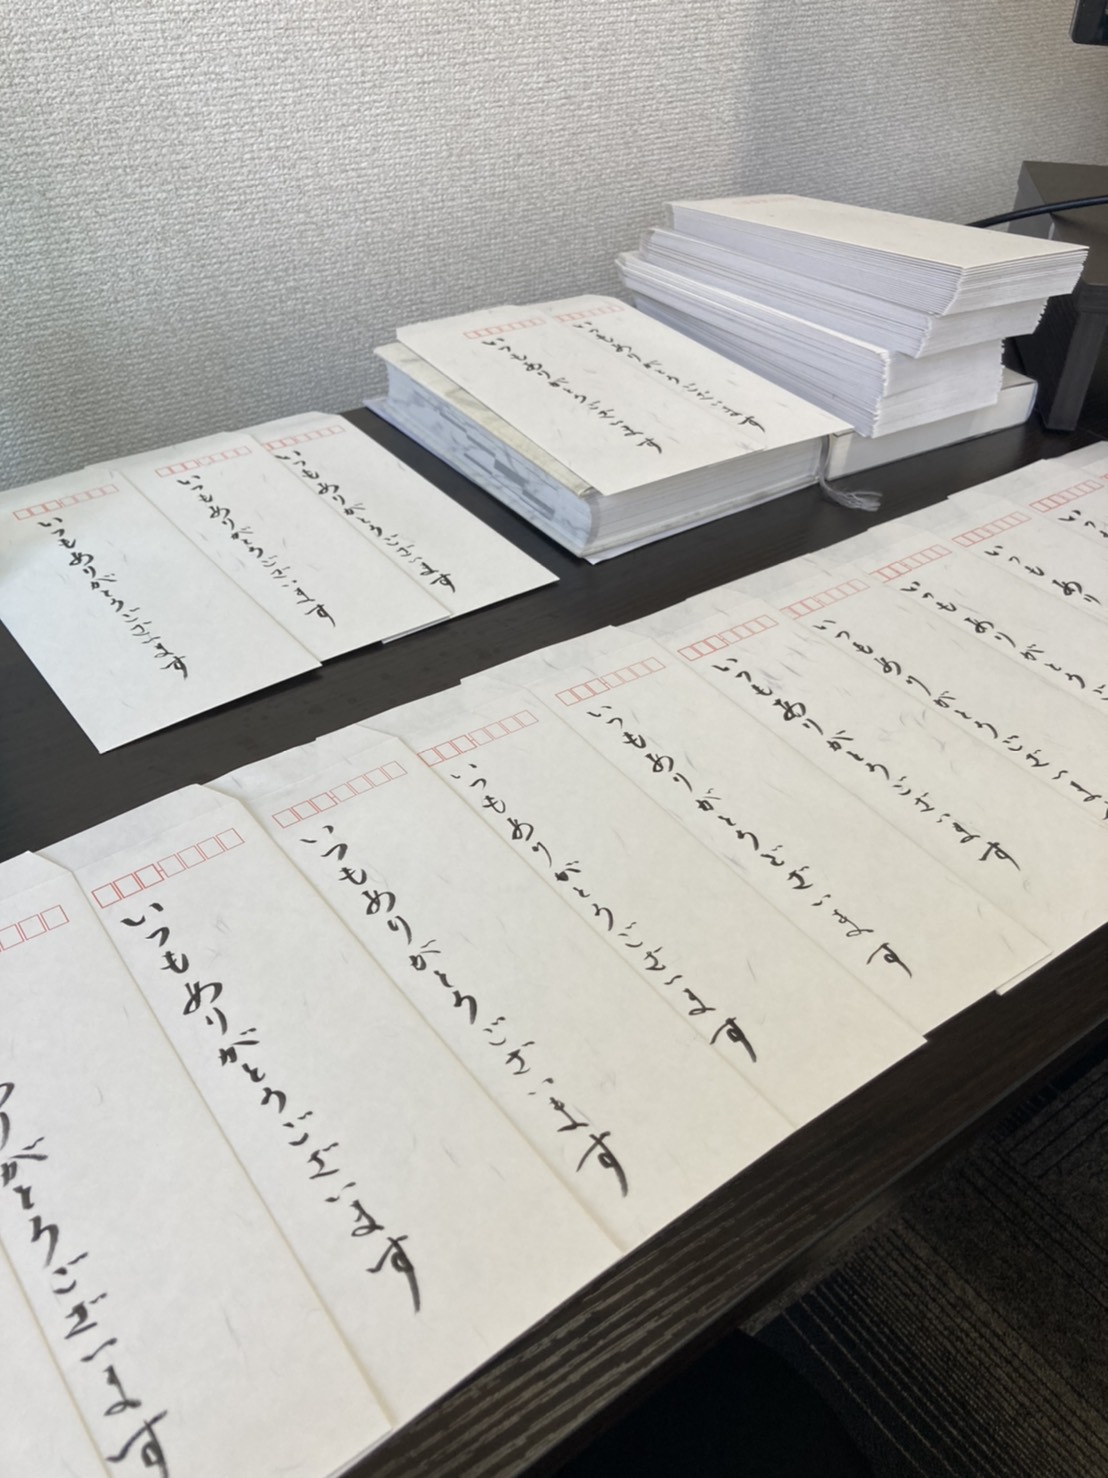 いつもありがとうございます
いつもありがとうございます
いつもありがとうございます
いつもありがとうございます
いつもありがとうございます
いつも
いつもあり
いつもありがとう
いつもありがとうございま
いつもありがとうございます
いつもありがとうございます
いつもありがとうございます
いつもありがとうございます
いつもありがとうございます
りがとうございます